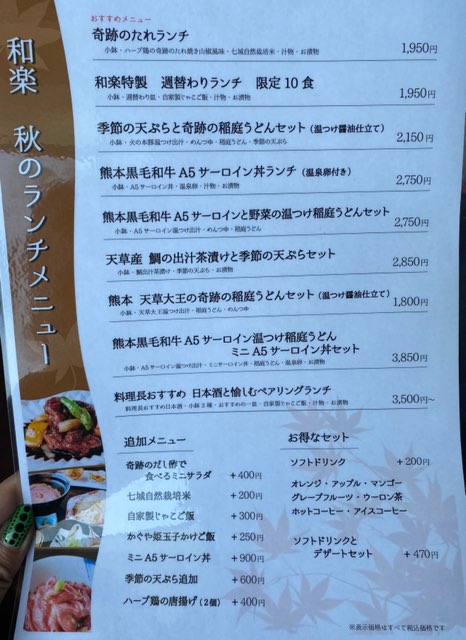 和楽 秋のランチメニュー
おすすめメニュー
奇跡のたれランチ 1,950円
小鉢・ハーブ鶏の奇跡のたれ焼き山椒風味・七城自然栽培米・汁物・お漬物
和楽特製 週替わりランチ 限定10食 1,950円
小鉢・週替わり皿・自家製じゃこご飯・汁物・お漬物
季節の天ぷらと奇跡の稲庭うどんセット（温つけ醤油仕立て） 2,150円
小鉢・火の本豚温つけ出汁・めんつゆ・稲庭うどん・季節の天ぷら
熊本黒毛和牛 A5サーロイン丼ランチ（温泉卵付き） 2,750円
小鉢・A5サーロイン丼・温泉卵・汁物・お漬物
熊本黒毛和牛 A5サーロインと野菜の温つけ稲庭うどんセット 2,750円
小鉢・A5サーロイン温つけ出汁・めんつゆ・稲庭うどん
天草産 鯛の出汁茶漬けと季節の天ぷらセット 2,850円
小鉢・鯛出汁茶漬け・季節の天ぷら・お漬物
熊本 天草大王の奇跡の稲庭うどんセット（温つけ醤油仕立て） 1,800円
小鉢・天草大王温つけ出汁・稲庭うどん・めんつゆ
熊本黒毛和牛 A5サーロイン温つけ稲庭うどん
ミニ A5サーロイン丼セット 3,850円
小鉢・A5サーロイン温つけ出汁・ミニサーロイン丼・稲庭うどん・温泉卵・お漬物
料理長おすすめ 日本酒と愉しむペアリングランチ 3,500円~
料理長おすすめ日本酒・小鉢3種・おすすめの一皿・自家製じゃこご飯・汁物・お漬物
追加メニュー
奇跡のだし酢で
食べるミニサラダ +400円
七城自然栽培米 +200円
自家製じゃこご飯 +300円
かぐや姫玉子かけご飯 +250円
ミニA5サーロイン丼 +900円
季節の天ぷら追加 +600円
ハーブ鶏の唐揚げ（2個） +400円
お得なセット
ソフトドリンク +200円
オレンジ・アップル・マンゴー
グレープフルーツ・ウーロン茶
ホットコーヒー・アイスコーヒー
ソフトドリンクと
デザートセット +470円
※表示価格はすべて税込価格です